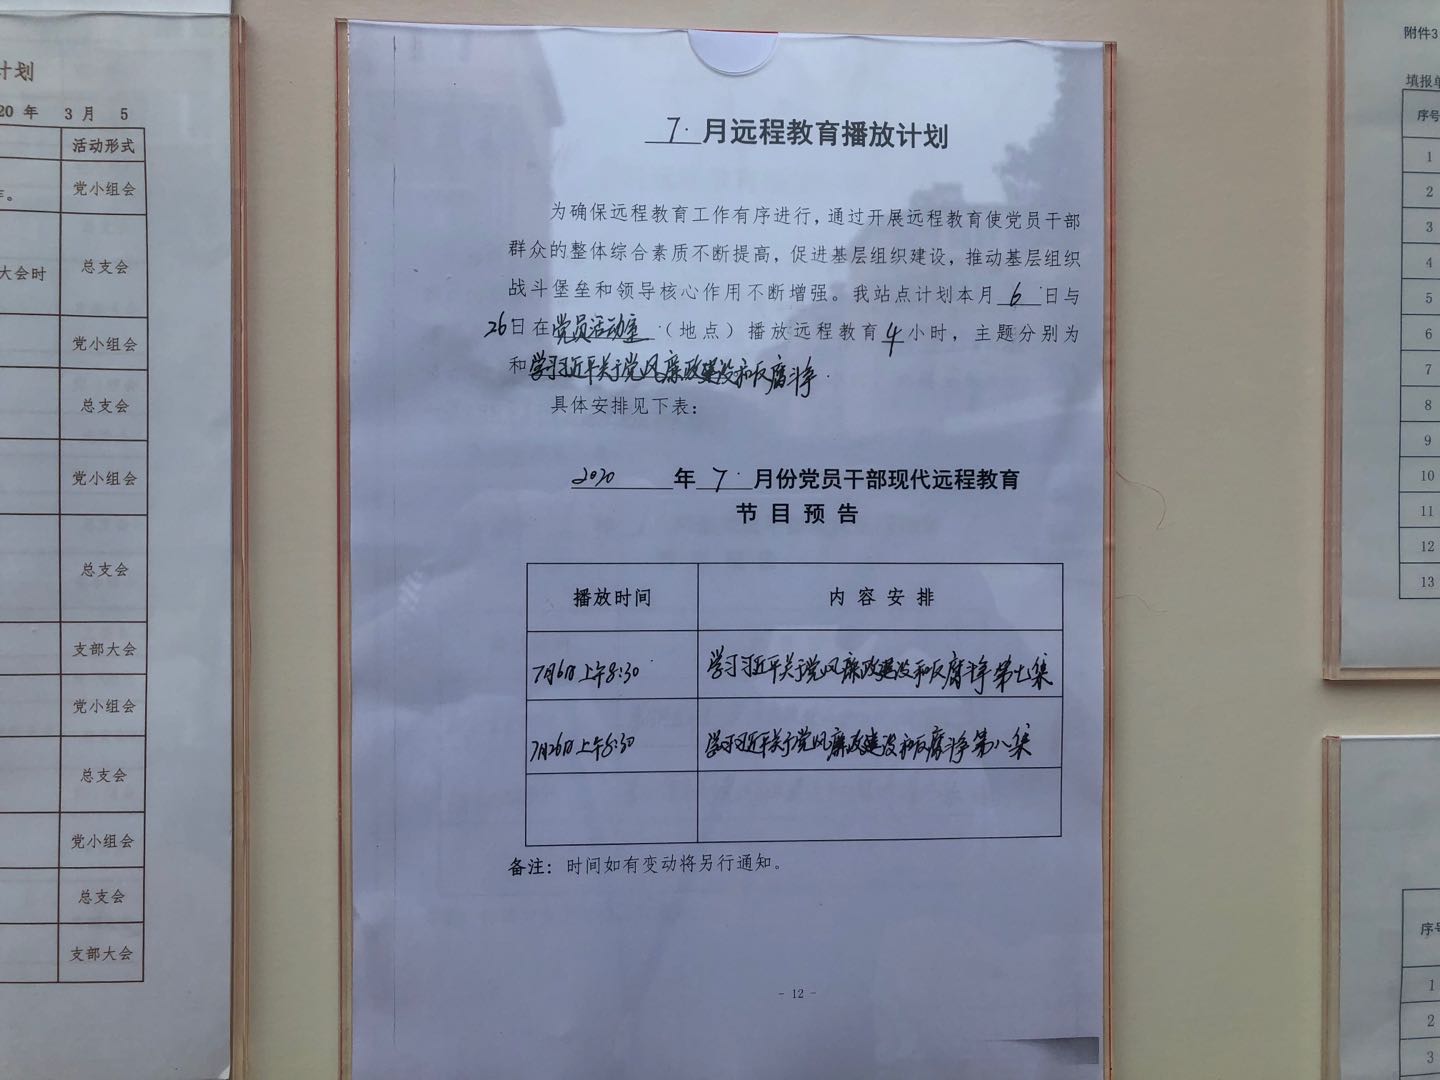 计划
20 年 3 月 5
活动形式
党小组会
总支会
大会时
党小组会
总支会
党小组会
总支会
支部大会
党小组会
总支会
党小组会
总支会
支部大会
7 月远程教育播放计划
为确保远程教育工作有序进行，通过开展远程教育使党员干部
群众的整体综合素质不断提高，促进基层组织建设，推动基层组织
战斗堡垒和领导核心作用不断增强。我站点计划本月 6 日与
26日在党员活动室（地点）播放远程教育4小时，主题分别为
和学习习近平关于党风廉政建设和反腐斗争
具体安排见下表：
2020 年 7 月份党员干部现代远程教育
节目预告
播放时间 内容安排
7月6日上午8:30 学习习近平关于党风廉政建设和反腐斗争第七集
7月26日上午8:30 学习习近平关于党风廉政建设和反腐斗争第八集
备注：时间如有变动将另行通知。
- 12 -
附件3
填报单
序号
1
2
3
4
5
6
7
8
9
10
11
12
13
序号
1
2
3